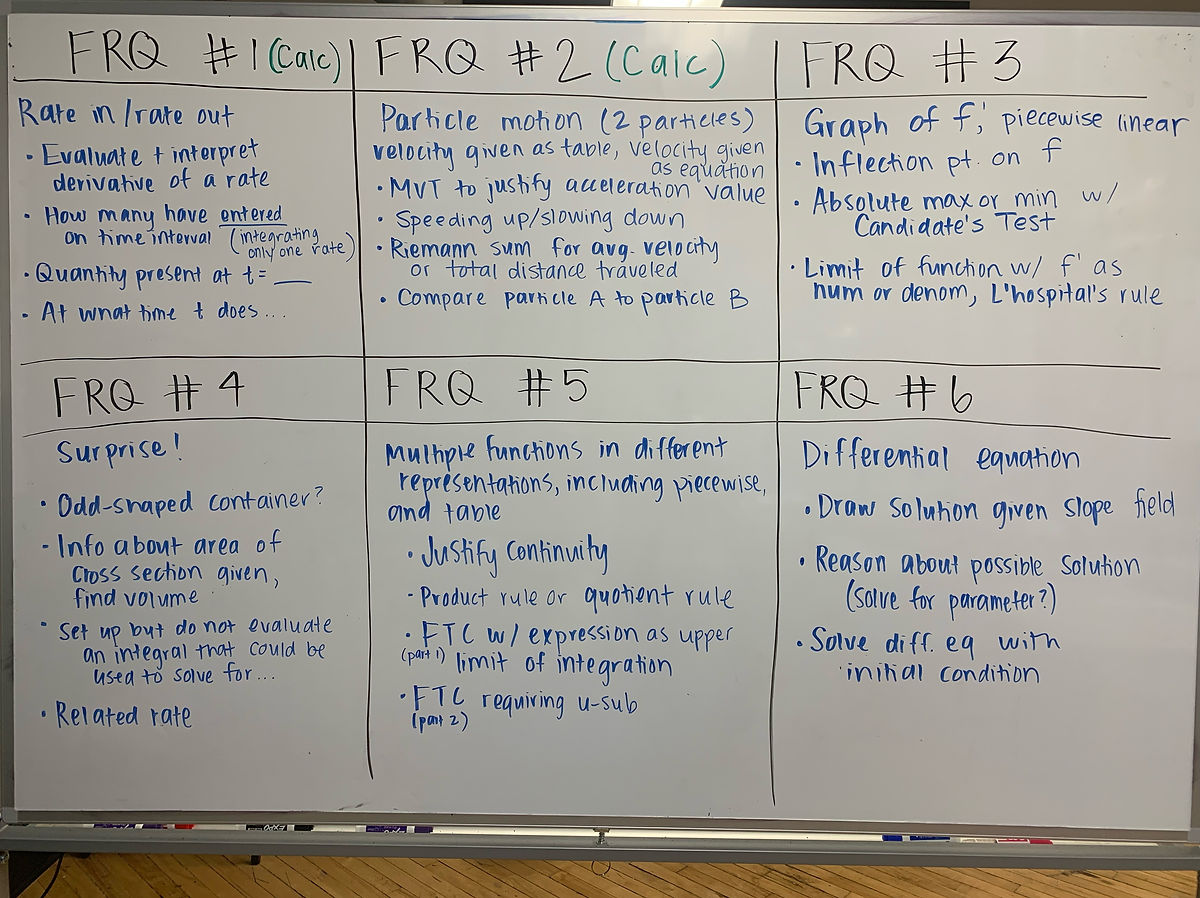 FRQ #1 (Calc)
Rate in/rate out
• Evaluate + interpret
derivative of a rate
• How many have entered
on time interval (integrating
only one rate)
• Quantity present at t = __
• At what time t does...
FRQ #2 (Calc)
Particle motion (2 particles)
velocity given as table, velocity given
as equation
• MVT to justify acceleration value
• Speeding up/slowing down
• Riemann sum for avg. velocity
or total distance traveled
• Compare particle A to particle B
FRQ #3
Graph of f', piecewise linear
• Inflection pt. on f
• Absolute max or min w/
Candidate's Test
• Limit of function w/ f' as
num or denom, L'hospital's rule
FRQ #4
Surprise!
• Odd-shaped container?
• Info about area of
cross section given,
find volume
• Set up but do not evaluate
an integral that could be
used to solve for...
• Related rate
FRQ #5
Multiple functions in different
representations, including piecewise,
and table
• Justify continuity
• Product rule or quotient rule
• FTC w/ expression as upper
(part 1) limit of integration
• FTC requiring u-sub
(part 2)
FRQ #6
Differential equation
• Draw solution given slope field
• Reason about possible solution
(solve for parameter?)
• Solve diff. eq with
initial condition